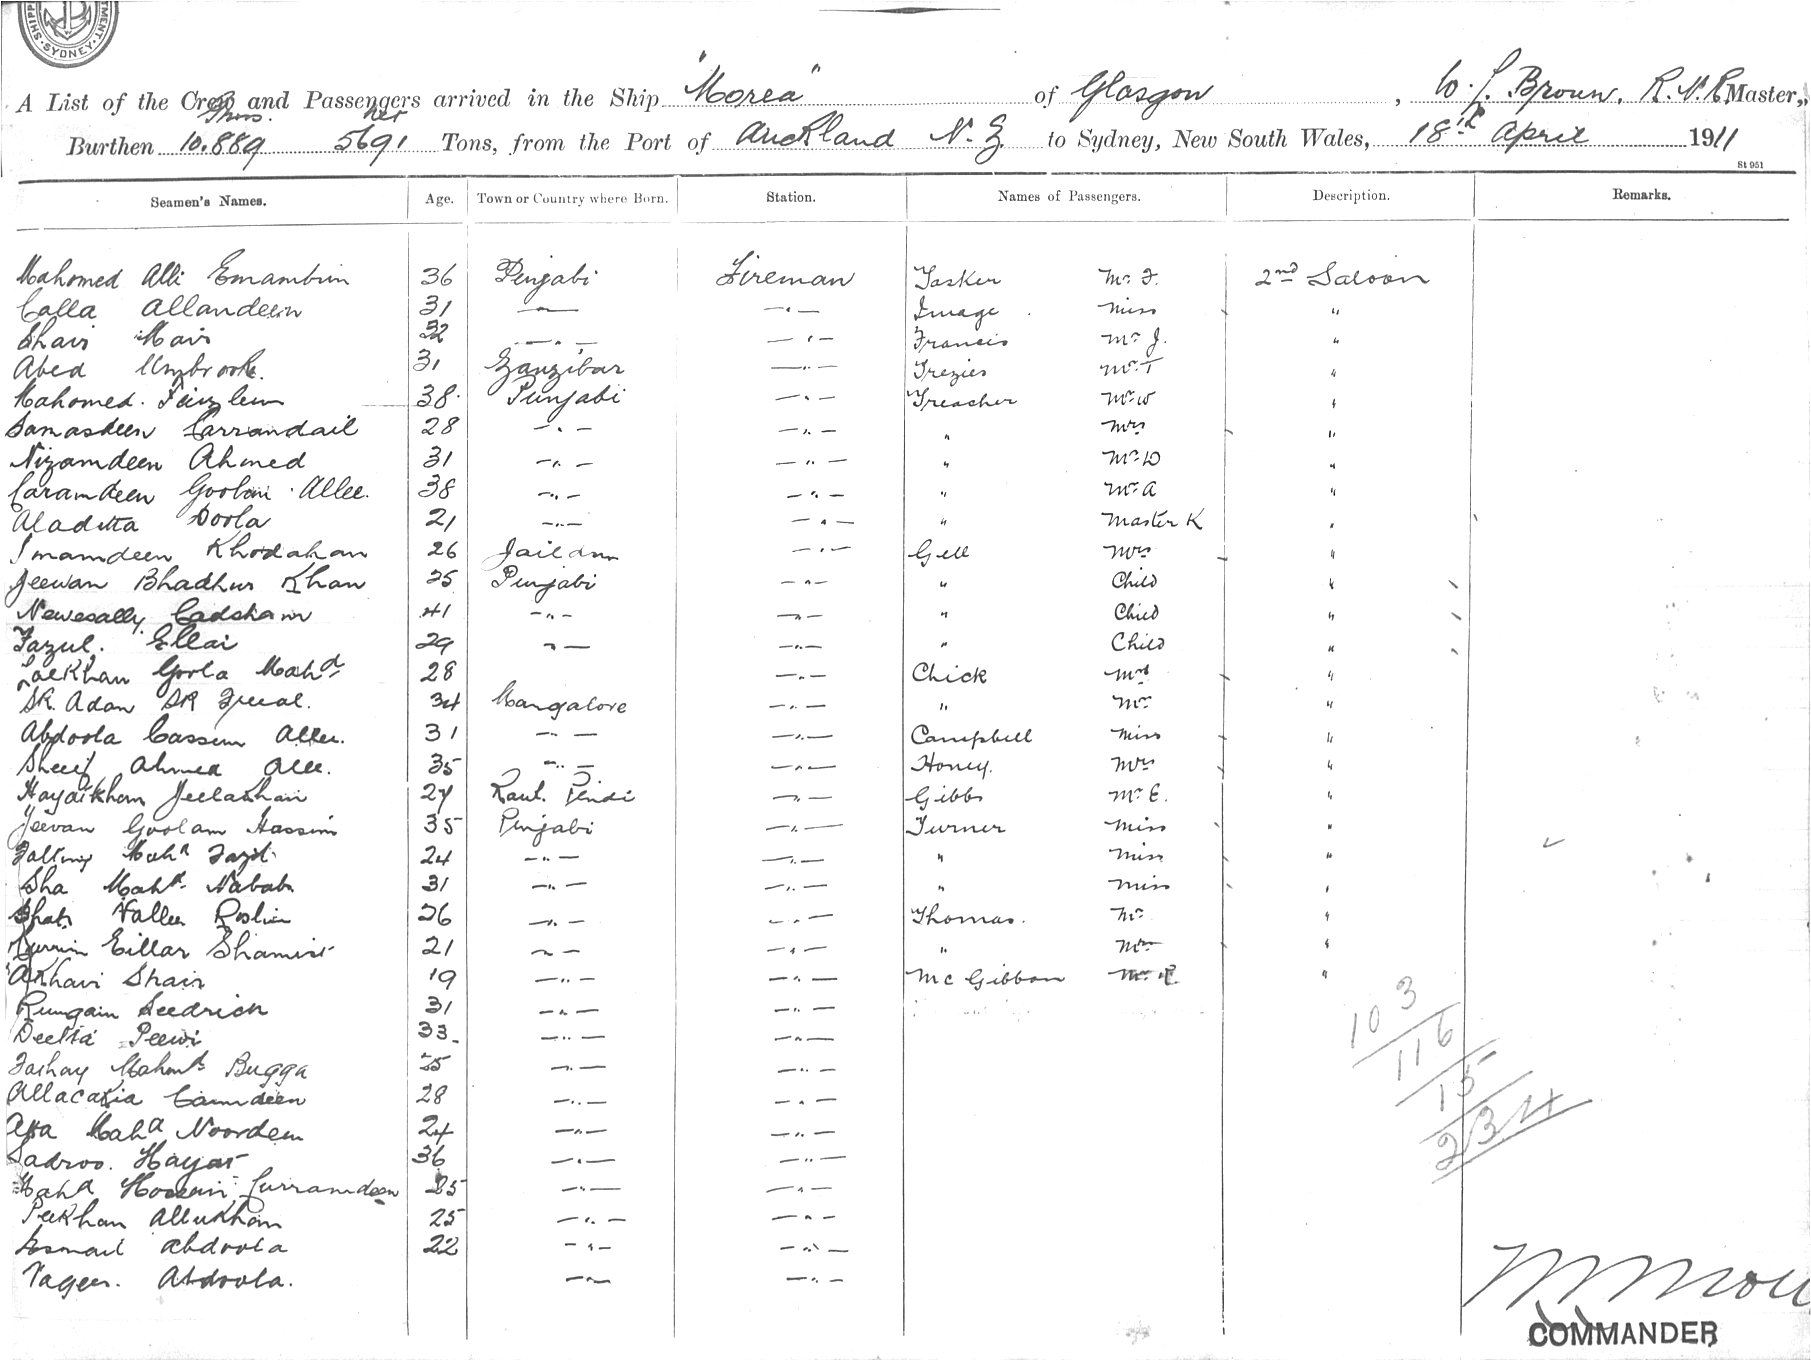 SYDNEY
A List of the Crew and Passengers arrived in the Ship "Morea" of Glasgow, W. L. Brown, R.N.R. Master,
Gross. net
Burthen 10.889 5691 Tons, from the Port of Auckland N.Z. to Sydney, New South Wales, 18th April 1911
St 951
Seamen's Names. Age. Town or Country where Born. Station. Names of Passengers. Description. Remarks.
Mahomed Alli Emambim 36 Punjabi Fireman Tasker Mr. F. 2nd Saloon
Calla Allandeen 31 —"— —"— Image Miss "
Shair Mair 32 —"— —"— Francis Mr J. "
Abed 31 Zanzibar —"— Trezies Mr T "
Mahomed. 38 Punjabi —"— Treacher Mr W "
Samasdeen Carrandail 28 —"— —"— " Mrs "
Nizamdeen Ahmed 31 —"— —"— " Mr D "
Caramdeen Goolam Allee. 38 —"— —"— " Mr A "
Aladitta Doola 21 —"— —"— " Master K "
Imamdeen Khodakan 26 —"— Gell Mrs "
Jeewan Bhadhur Khan 25 Punjabi —"— " Child "
Newesally Cadsham 41 —"— —"— " Child "
Fazul. Ellai 29 —"— —"— " Child "
Goola Mahd 28 —"— Chick Mrs "
SK. Adam SK 34 Mangalore —"— " Mr "
Abdoola Cassem Allee. 31 —"— —"— Campbell Miss "
Sheif Ahmed Alle. 35 —"— —"— Honey. Mrs "
Hayatkhan Jeelakhan 27 Raul. Pindi —"— Gibbs Mr E. "
Jeevan Goolam Hassim 35 Punjabi —"— Turner Miss "
Mahd Fazil 24 —"— —"— " Miss "
Sha Mahd. Nabab 31 —"— —"— " Miss "
Vallee 26 —"— —"— Thomas. Mr "
Eillar 21 —"— —"— " Mrs "
Akhavi Shair 19 —"— —"— Mc Gibbon "
Rungain Seedrick 31 —"— —"—
Deetta Peewi 33 —"— —"—
Mahomd Bugga 25 —"— —"—
Allacakia Camdeen 28 —"— —"—
Atta Mahd Noordeen 24 —"— —"—
Sadroo. Hayat 36 —"— —"—
Mahd Hossein Curramdeen 25 —"— —"—
Peekhan Allukhan 25 —"— —"—
Ismail Abdoola 22 —"— —"—
Abdoola. —"— —"—
103
116
15
234
COMMANDER